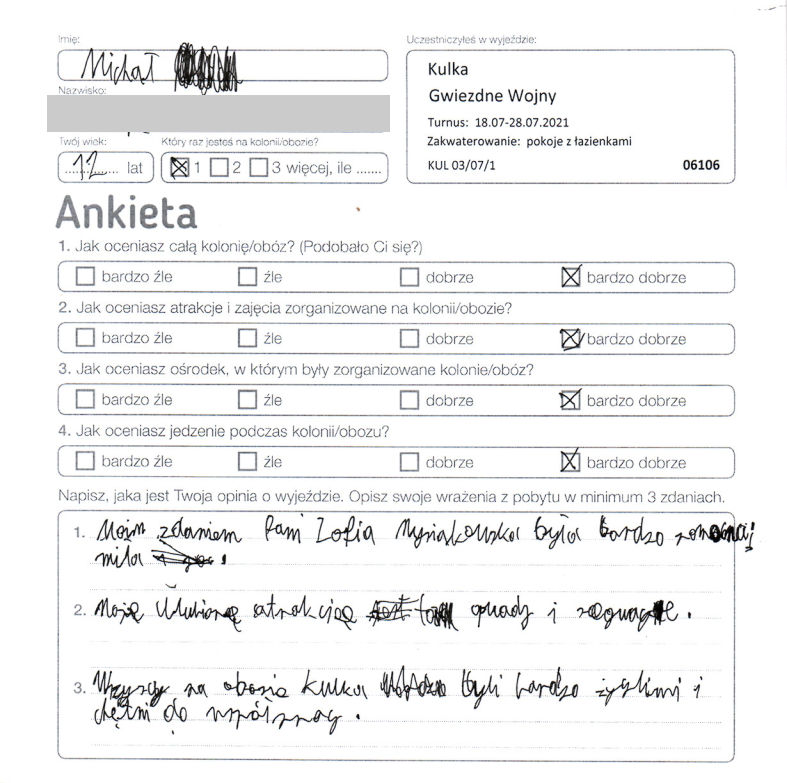 Imię:
Michał
Nazwisko:
Twój wiek:
Który raz jesteś na kolonii/obozie?
12 lat
1 2 3 więcej, ile .......
Uczestniczyłeś w wyjeździe:
Kulka
Gwiezdne Wojny
Turnus: 18.07-28.07.2021
Zakwaterowanie: pokoje z łazienkami
KUL 03/07/1 06106
Ankieta
1. Jak oceniasz całą kolonię/obóz? (Podobało Ci się?)
bardzo źle źle dobrze bardzo dobrze
2. Jak oceniasz atrakcje i zajęcia zorganizowane na kolonii/obozie?
bardzo źle źle dobrze bardzo dobrze
3. Jak oceniasz ośrodek, w którym były zorganizowane kolonie/obóz?
bardzo źle źle dobrze bardzo dobrze
4. Jak oceniasz jedzenie podczas kolonii/obozu?
bardzo źle źle dobrze bardzo dobrze
Napisz, jaka jest Twoja opinia o wyjeździe. Opisz swoje wrażenia z pobytu w minimum 3 zdaniach.
1. Moim zdaniem Pani Zofia była bardzo
miła .
2. Moje ulubione atrakcje quady i .
3. Wszyscy na obozie Kulka byli bardzo życzliwi i
chętni do współpracy .